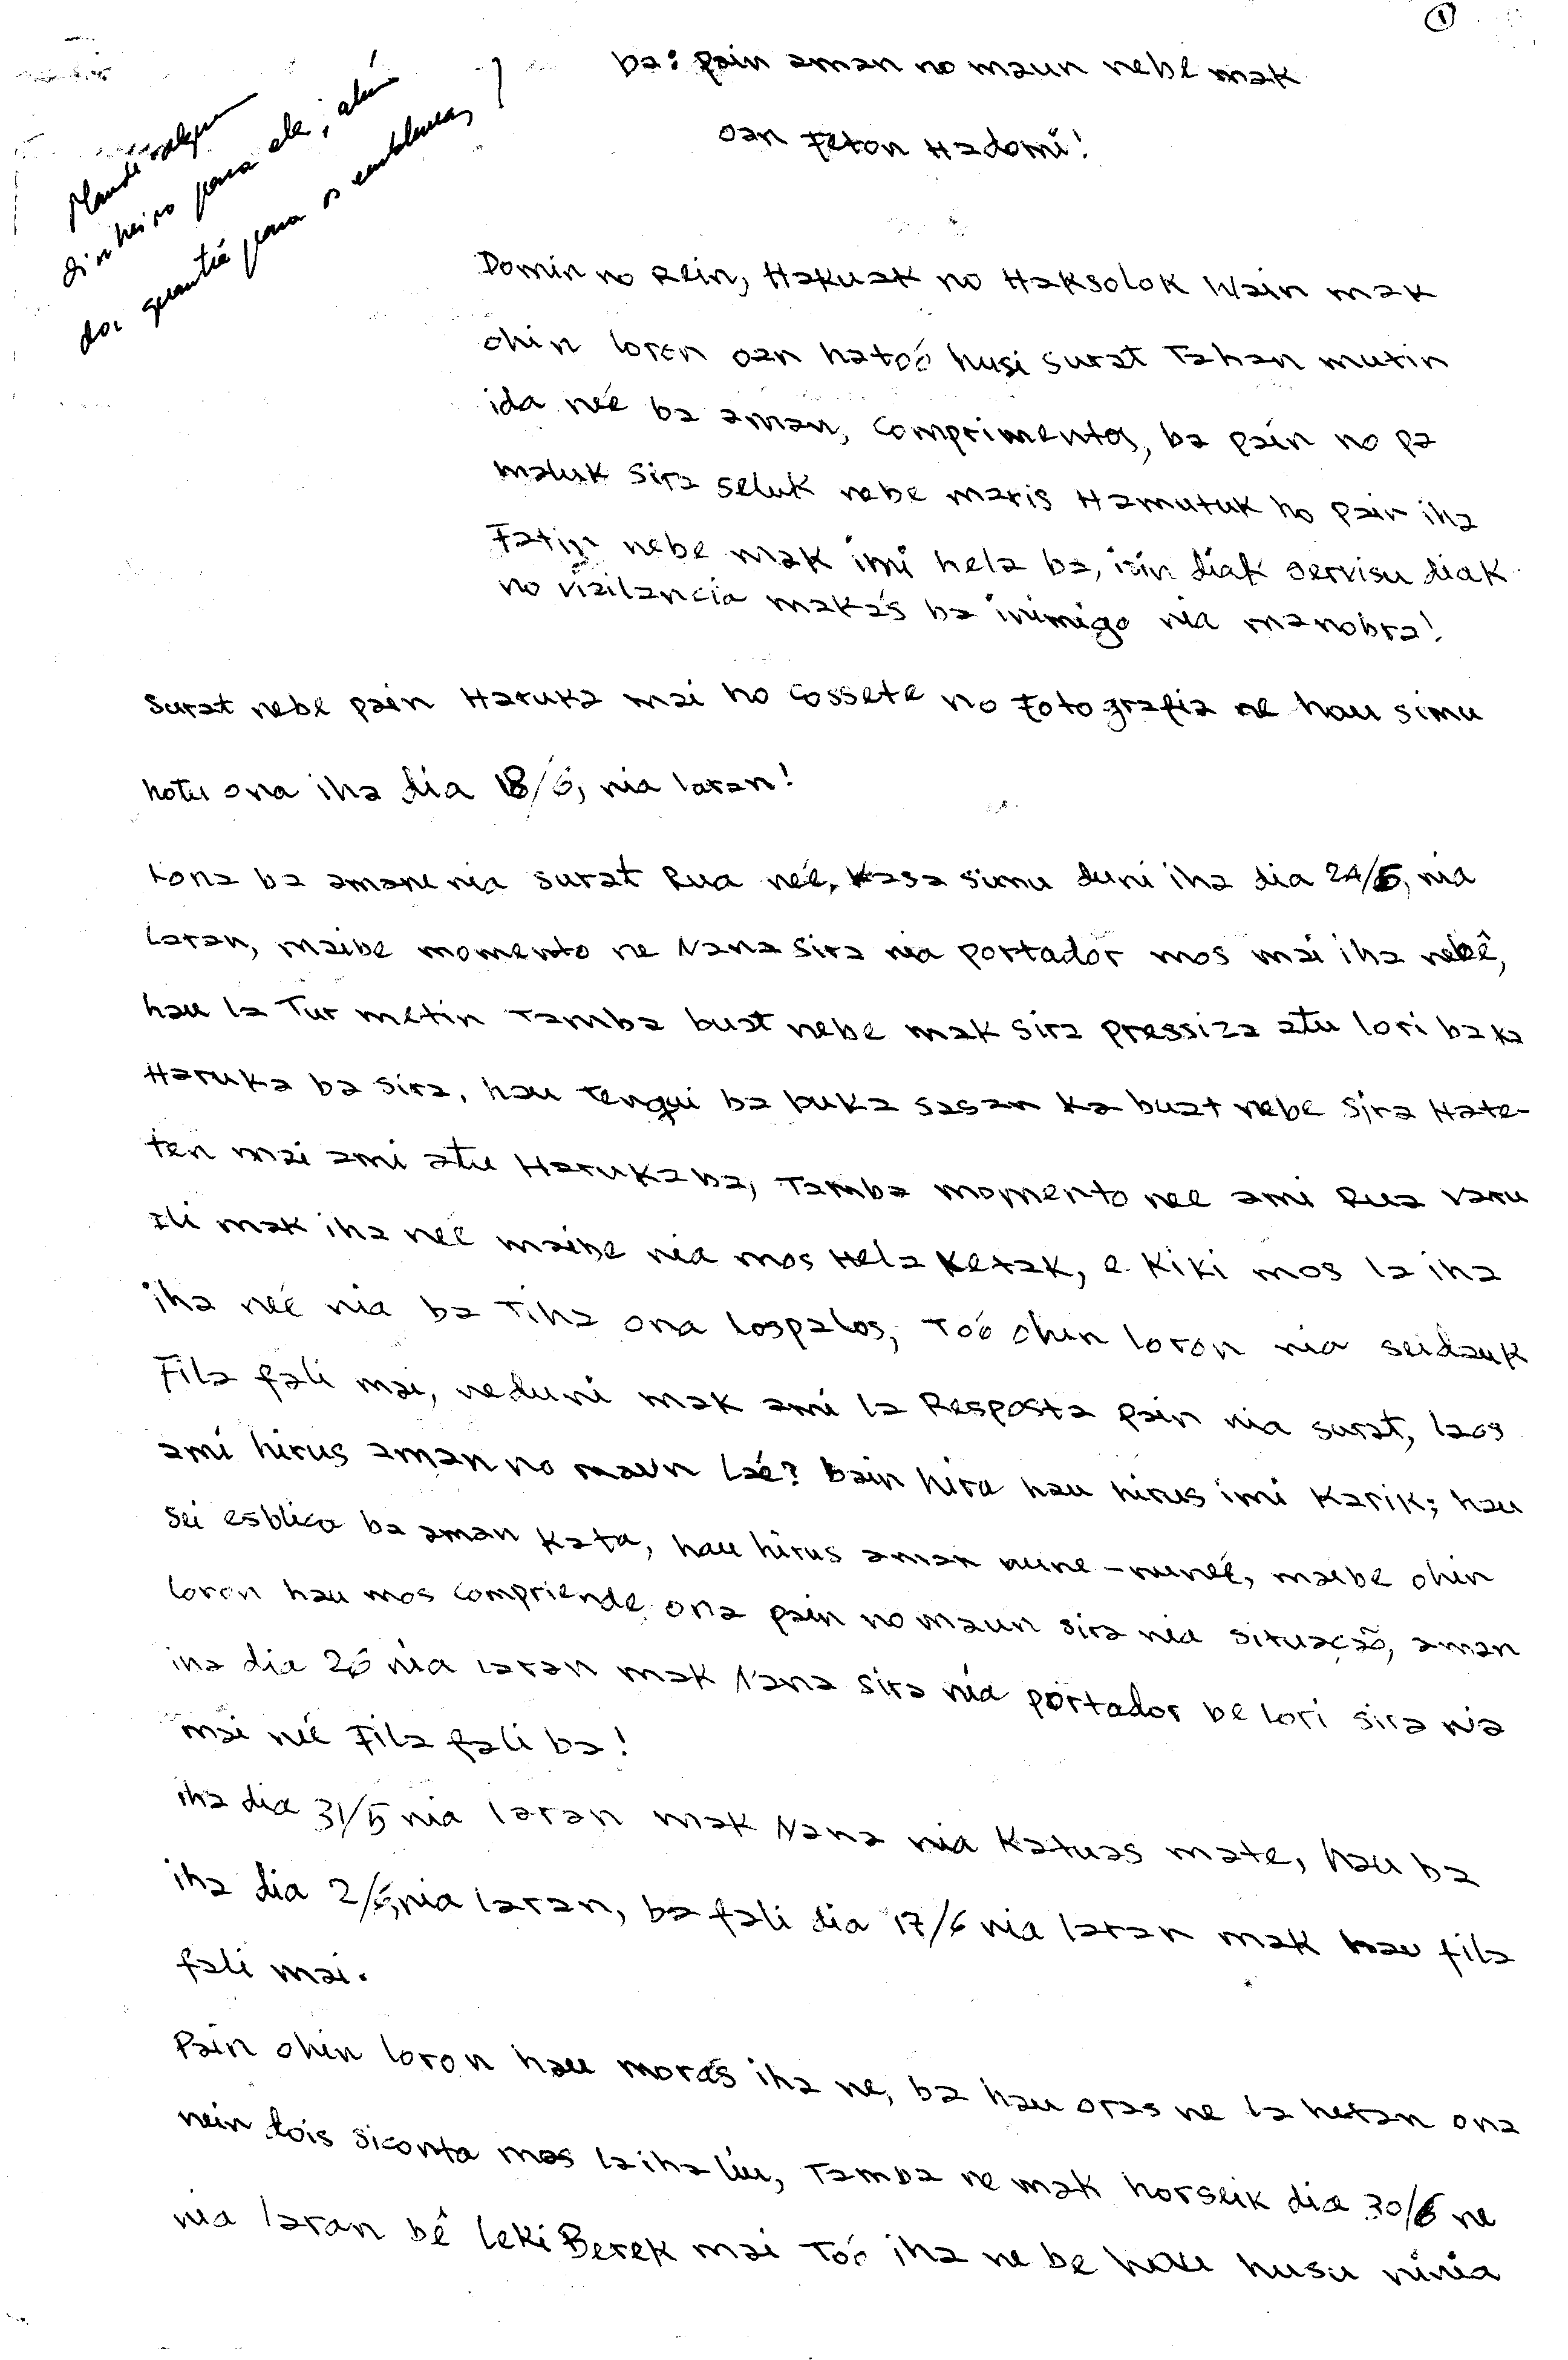 ①
ba: pain aman no maun nebe mak
oan Feton Hadomi!
Mandei algum
dinheiro para ele; além
do, garantia para os emblemas,
Domin no Rein, Hakuak no Haksolok Wain mak
ohin loron oan hatoó husi surat Tahan mutin
ida neé ba aman, comprimentos, ba pain no pa
maluk sira seluk nebe maris Hamutuk ho pain iha
Fatin nebe mak imi hela ba, isin diak servisu diak
no vizilancia makas ba inimigo nia manobra!
Surat nebe pain Haruka mai ho Cossete no Fotografia ne hau simu
hotu ona iha dia 18/6, nia laran!
Kona ba amane nia surat Rua neé, Kasa simu duni iha dia 24/5, nia
laran, maibe momento ne Nana sira nia portador mos mai iha nebê,
hau la Tur metin Tamba buat nebe mak sira pressiza atu lori ba ka
Haruka ba sira, hau Tengui ba buka sasan ka buat nebe sira Hate-
ten mai ami atu Haruka ba, Tamba momento nee ami Rua Varu
Ili mak iha neé maibe nia mos Hela Ketak, e Kiki mos la iha
iha neé nia ba Tiha ona Lospalos, Toó ohin loron nia seidauk
Fila fali mai, neduni mak ami la Resposta pain nia surat, laos
ami hirus aman no maun laé? bain hira hau hirus imi Karik; hau
sei esblica ba aman Kata, hau hirus aman nune-nuneé, maibe ohin
loron hau mos compriende ona pain no maun sira nia situação, aman
iha dia 26 nia laran mak Nana sira nia portador be lori sira nia
mai neé Fila fali ba!
iha dia 31/5 nia laran mak Nana nia Katuas mate, hau ba
iha dia 2/6, nia laran, ba fali dia 17/6 nia laran mak hau fila
fali mai.
Pain ohin loron hau moras iha ne, ba hau oras ne la hetan ona
nein dois siconta mos laiha liu, Tamba ne mak horseik dia 30/6 ne
nia laran bê Leki Berek mai Toó iha ne be hau husu ninia